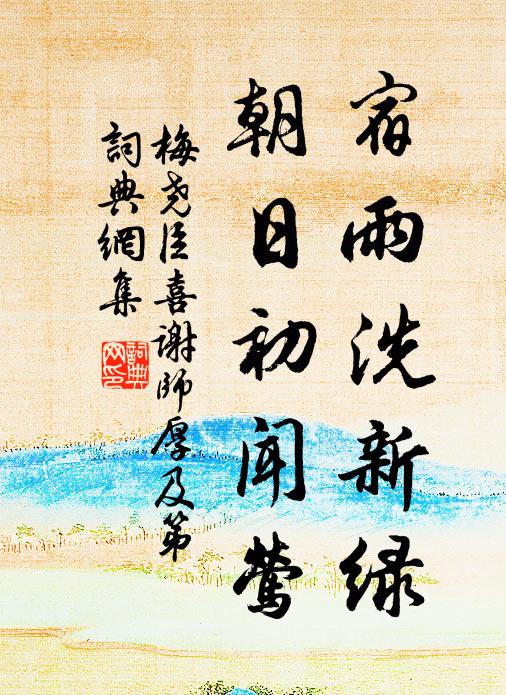 宿雨洗新绿
朝日初闻莺
梅尧臣喜谢师厚及第
詞典網集
詞典
网印